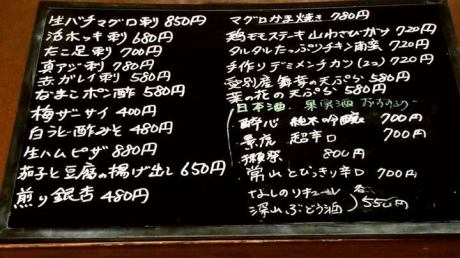 生バチマグロ刺 850円
活ホッキ刺 680円
たこ足刺 700円
真アジ刺 780円
赤ガレイ刺 580円
なまこポン酢 580円
梅ザーサイ 400円
白うど酢みそ 480円
生ハムピザ 880円
茄子と豆腐の揚げ出し 650円
煎り銀杏 480円
マグロかま焼き 780円
鶏モモステーキ山わさびがけ 720円
タルタルたっぷりチキン南蛮 720円
手作りデミメンチカツ(2コ) 720円
愛別産 舞茸の天ぷら 580円
菜の花の天ぷら 580円
日本酒・果実酒
酔心 純米吟醸 700円
景虎 超辛口 700円
獺祭 800円
常山 とびっきり辛口 700円
なしのリキュール
深山ぶどう酒
各 550円